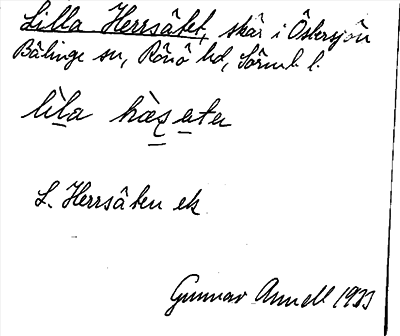 Lilla Herrsâtet, skär i Östersjön
Bälinge sn, Rönö hd, Sörml. l.
lìla hàsata
L. Herrsâten ek
Gunnar Annell 1933